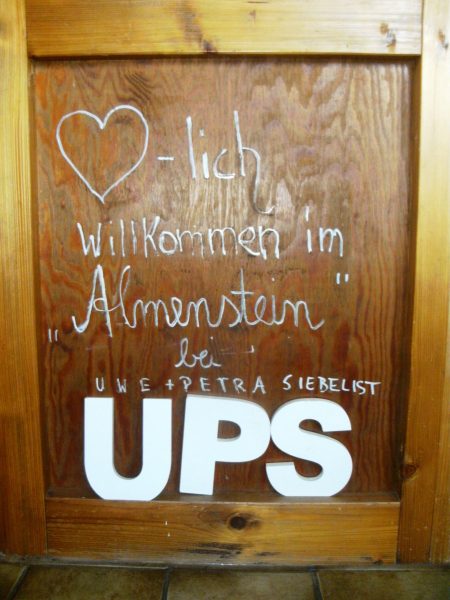 ♥-lich
Willkommen im
„Almenstein"
bei
UWE + PETRA SIEBELIST
UPS